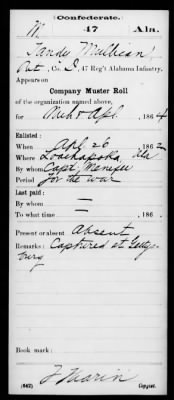 Confederate.
M 47 Ala.
Tandy Mullican
Pvt., Co. I, 47 Reg't Alabama Infantry.
Appears on
Company Muster Roll
of the organization named above,
for Mch & Apl, 1864
Enlisted:
When Apl 26, 1862
Where Loachapoka, Ala
By whom Capt.
Period for the war
Last paid:
By whom
To what time , 186 .
Present or absent Absent
Remarks: Captured at Getty-
burg
Book mark:
(642) Copyist.